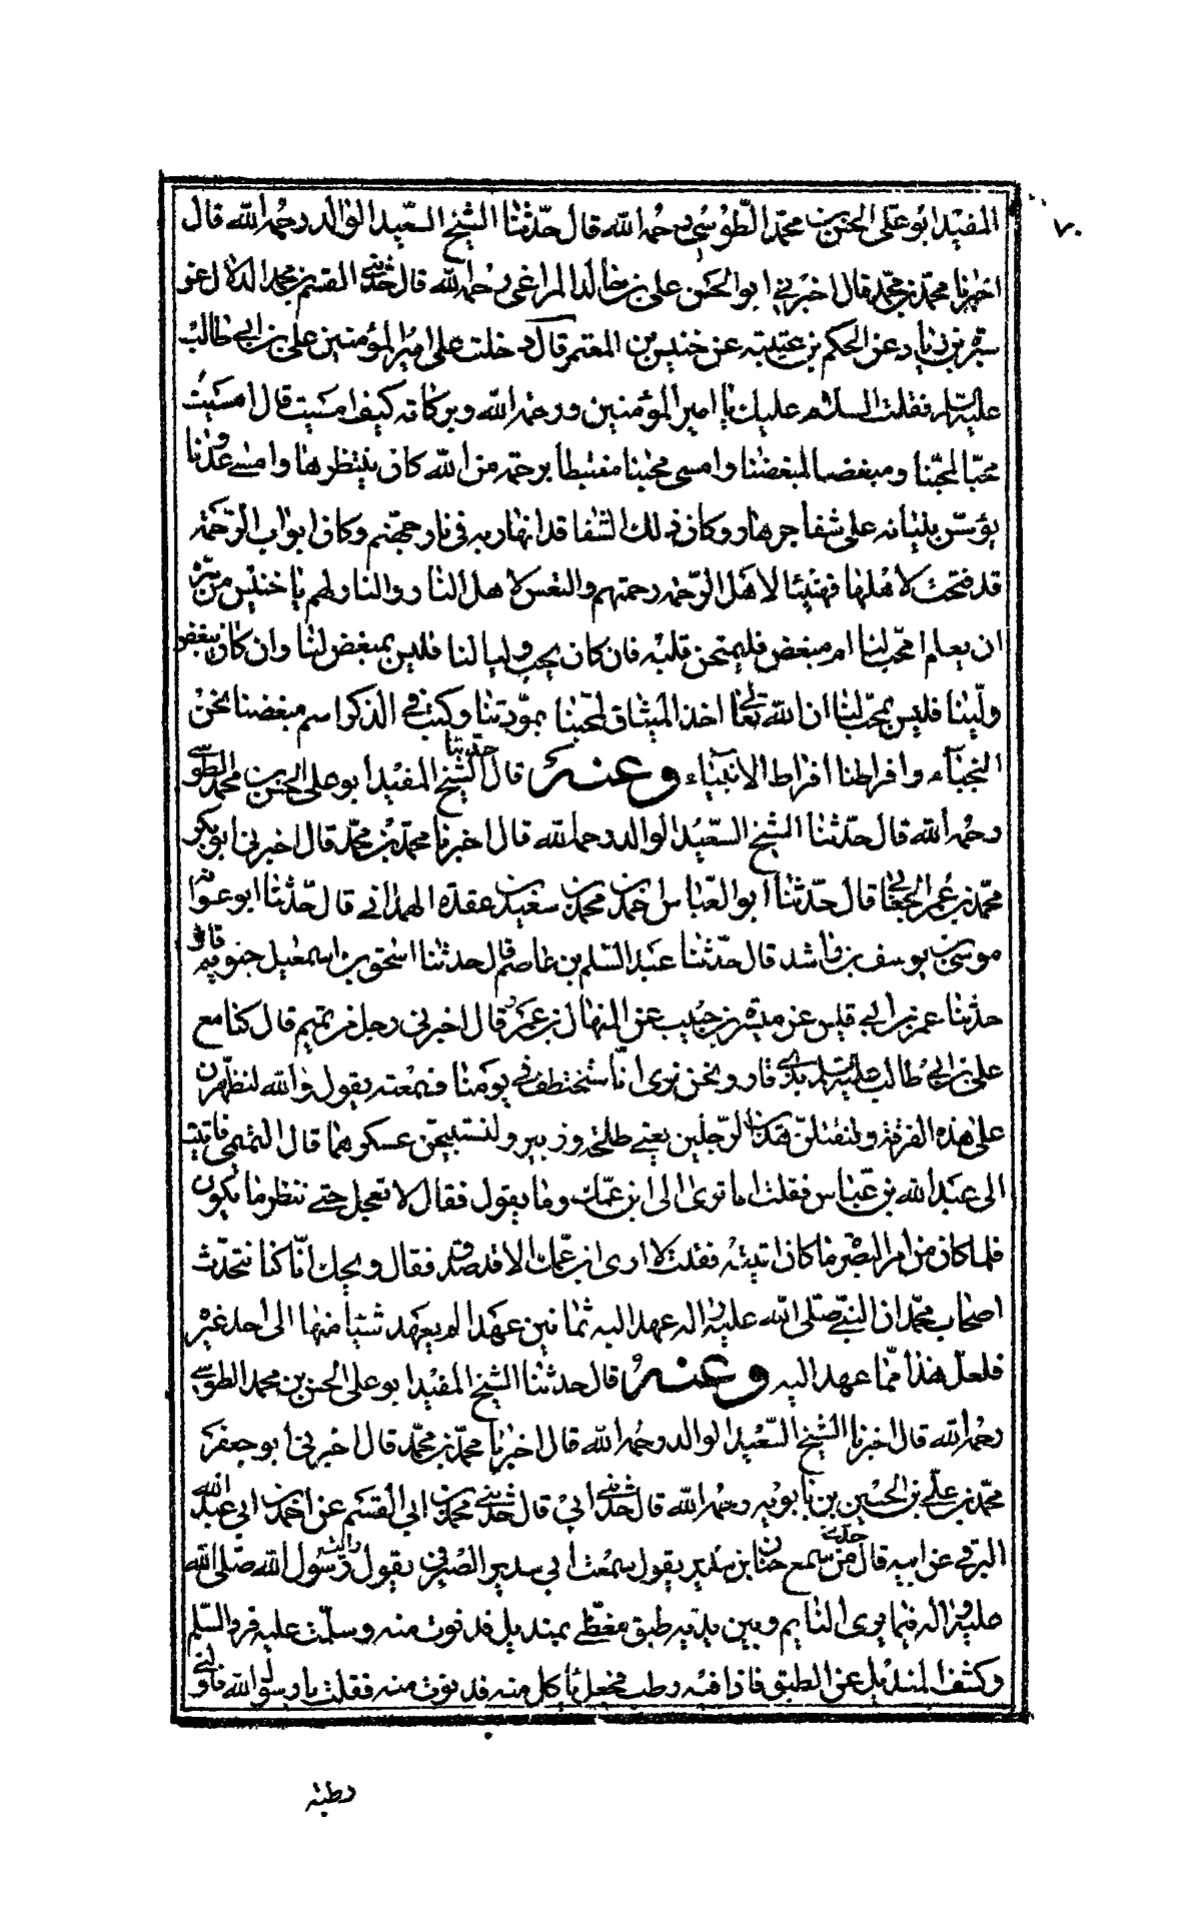 ٧٠
المفيد ابو علي الحسن بن محمد الطوسي رحمه الله قال حدثنا الشيخ السعيد الوالد رحمه الله قال
اخبرنا محمد بن محمد قال اخبرني ابو الحسن علي بن خالد المراغي رحمه الله قال حدثني القسم بن محمد الدلال عن
سبرة بن زياد عن الحكم بن عتيبة عن خنيس بن المعتمر قال دخلت على امير المؤمنين علي بن ابي طالب
عليه السلام فقلت السلام عليك يا امير المؤمنين ورحمة الله وبركاته كيف امسيت قال امسيت
محبا لمحبنا ومبغضا لمبغضنا وامسى محبنا مغتبطا برحمة من الله كان ينتظرها وامسى عدونا
يؤسس بنيانه على شفا جرف هار وكان ذلك الشفا قد انهار به في نار جهنم وكان ابواب الرحمة
قد فتحت لاهلها فهنيئا لاهل الرحمة رحمتهم والتعس لاهل النار والنار لهم يا خنيس من سره
ان يعلم امحب لنا ام مبغض فليمتحن قلبه فان كان يحب وليا لنا فليس بمبغض لنا وان كان يبغض
ولينا فليس بمحب لنا ان الله تعالى اخذ الميثاق لمحبنا بمودتنا وكتب في الذكر اسم مبغضنا نحن
النجباء وافراطنا افراط الانبياء وعنه قال حدثنا الشيخ المفيد ابو علي الحسن بن محمد الطوسي
رحمه الله قال حدثنا الشيخ السعيد الوالد رحمه الله قال اخبرنا محمد بن محمد قال اخبرني ابو بكر
محمد بن عمر الجعابي قال حدثنا ابو العباس احمد بن محمد بن سعيد بن عقدة الهمداني قال حدثنا ابو عوانة
موسى بن يوسف بن راشد قال حدثنا عبد السلم بن عاصم قال حدثنا اسحق بن اسمعيل حبويه قال
حدثنا عمر بن ابي قيس عن ميسرة بن حبيب عن المنهال بن عمرو قال اخبرني رجل من تميم قال كنا مع
علي بن ابي طالب عليه السلم بذي قار ونحن نرى انا سنختطف في يومنا فسمعته يقول والله لنظهرن
على هذه الفرقة ولنقتلن هذين الرجلين يعني طلحة وزبير ولنستبيحن عسكرهما قال التميمي فاتيت
الى عبد الله بن عباس فقلت اما ترى الى ابن عمك وما يقول فقال لا تعجل حتى ننظر ما يكون
فلما كان من امر البصرة ما كان اتيته فقلت لا ارى ابن عمك الا قد صدق فقال ويحك انا كنا نتحدث
اصحاب محمد ان النبي صلى الله عليه واله عهد اليه ثمانين عهدا لم يعهد شيئا منها الى احد غيره
فلعل هذا مما عهد اليه وعنه قال حدثنا الشيخ المفيد ابو علي الحسن بن محمد الطوسي
رحمه الله قال اخبرنا الشيخ السعيد الوالد رحمه الله قال اخبرنا محمد بن محمد قال اخبرني ابو جعفر
محمد بن علي بن الحسين بن بابويه رحمه الله قال حدثني ابي قال حدثني محمد بن ابي القسم عن احمد بن ابي عبد الله
البرقي عن ابيه قال حدثني من سمع حنان بن سدير يقول سمعت ابي سدير الصيرفي يقول رايت رسول الله صلى الله
عليه واله فيما يرى النايم وبين يديه طبق مغطى بمنديل فدنوت منه وسلمت عليه فرد السلم
وكشف المنديل عن الطبق فاذا فيه رطب فجعل ياكل منه فدنوت منه فقلت يا رسول الله ناولني
رطبة